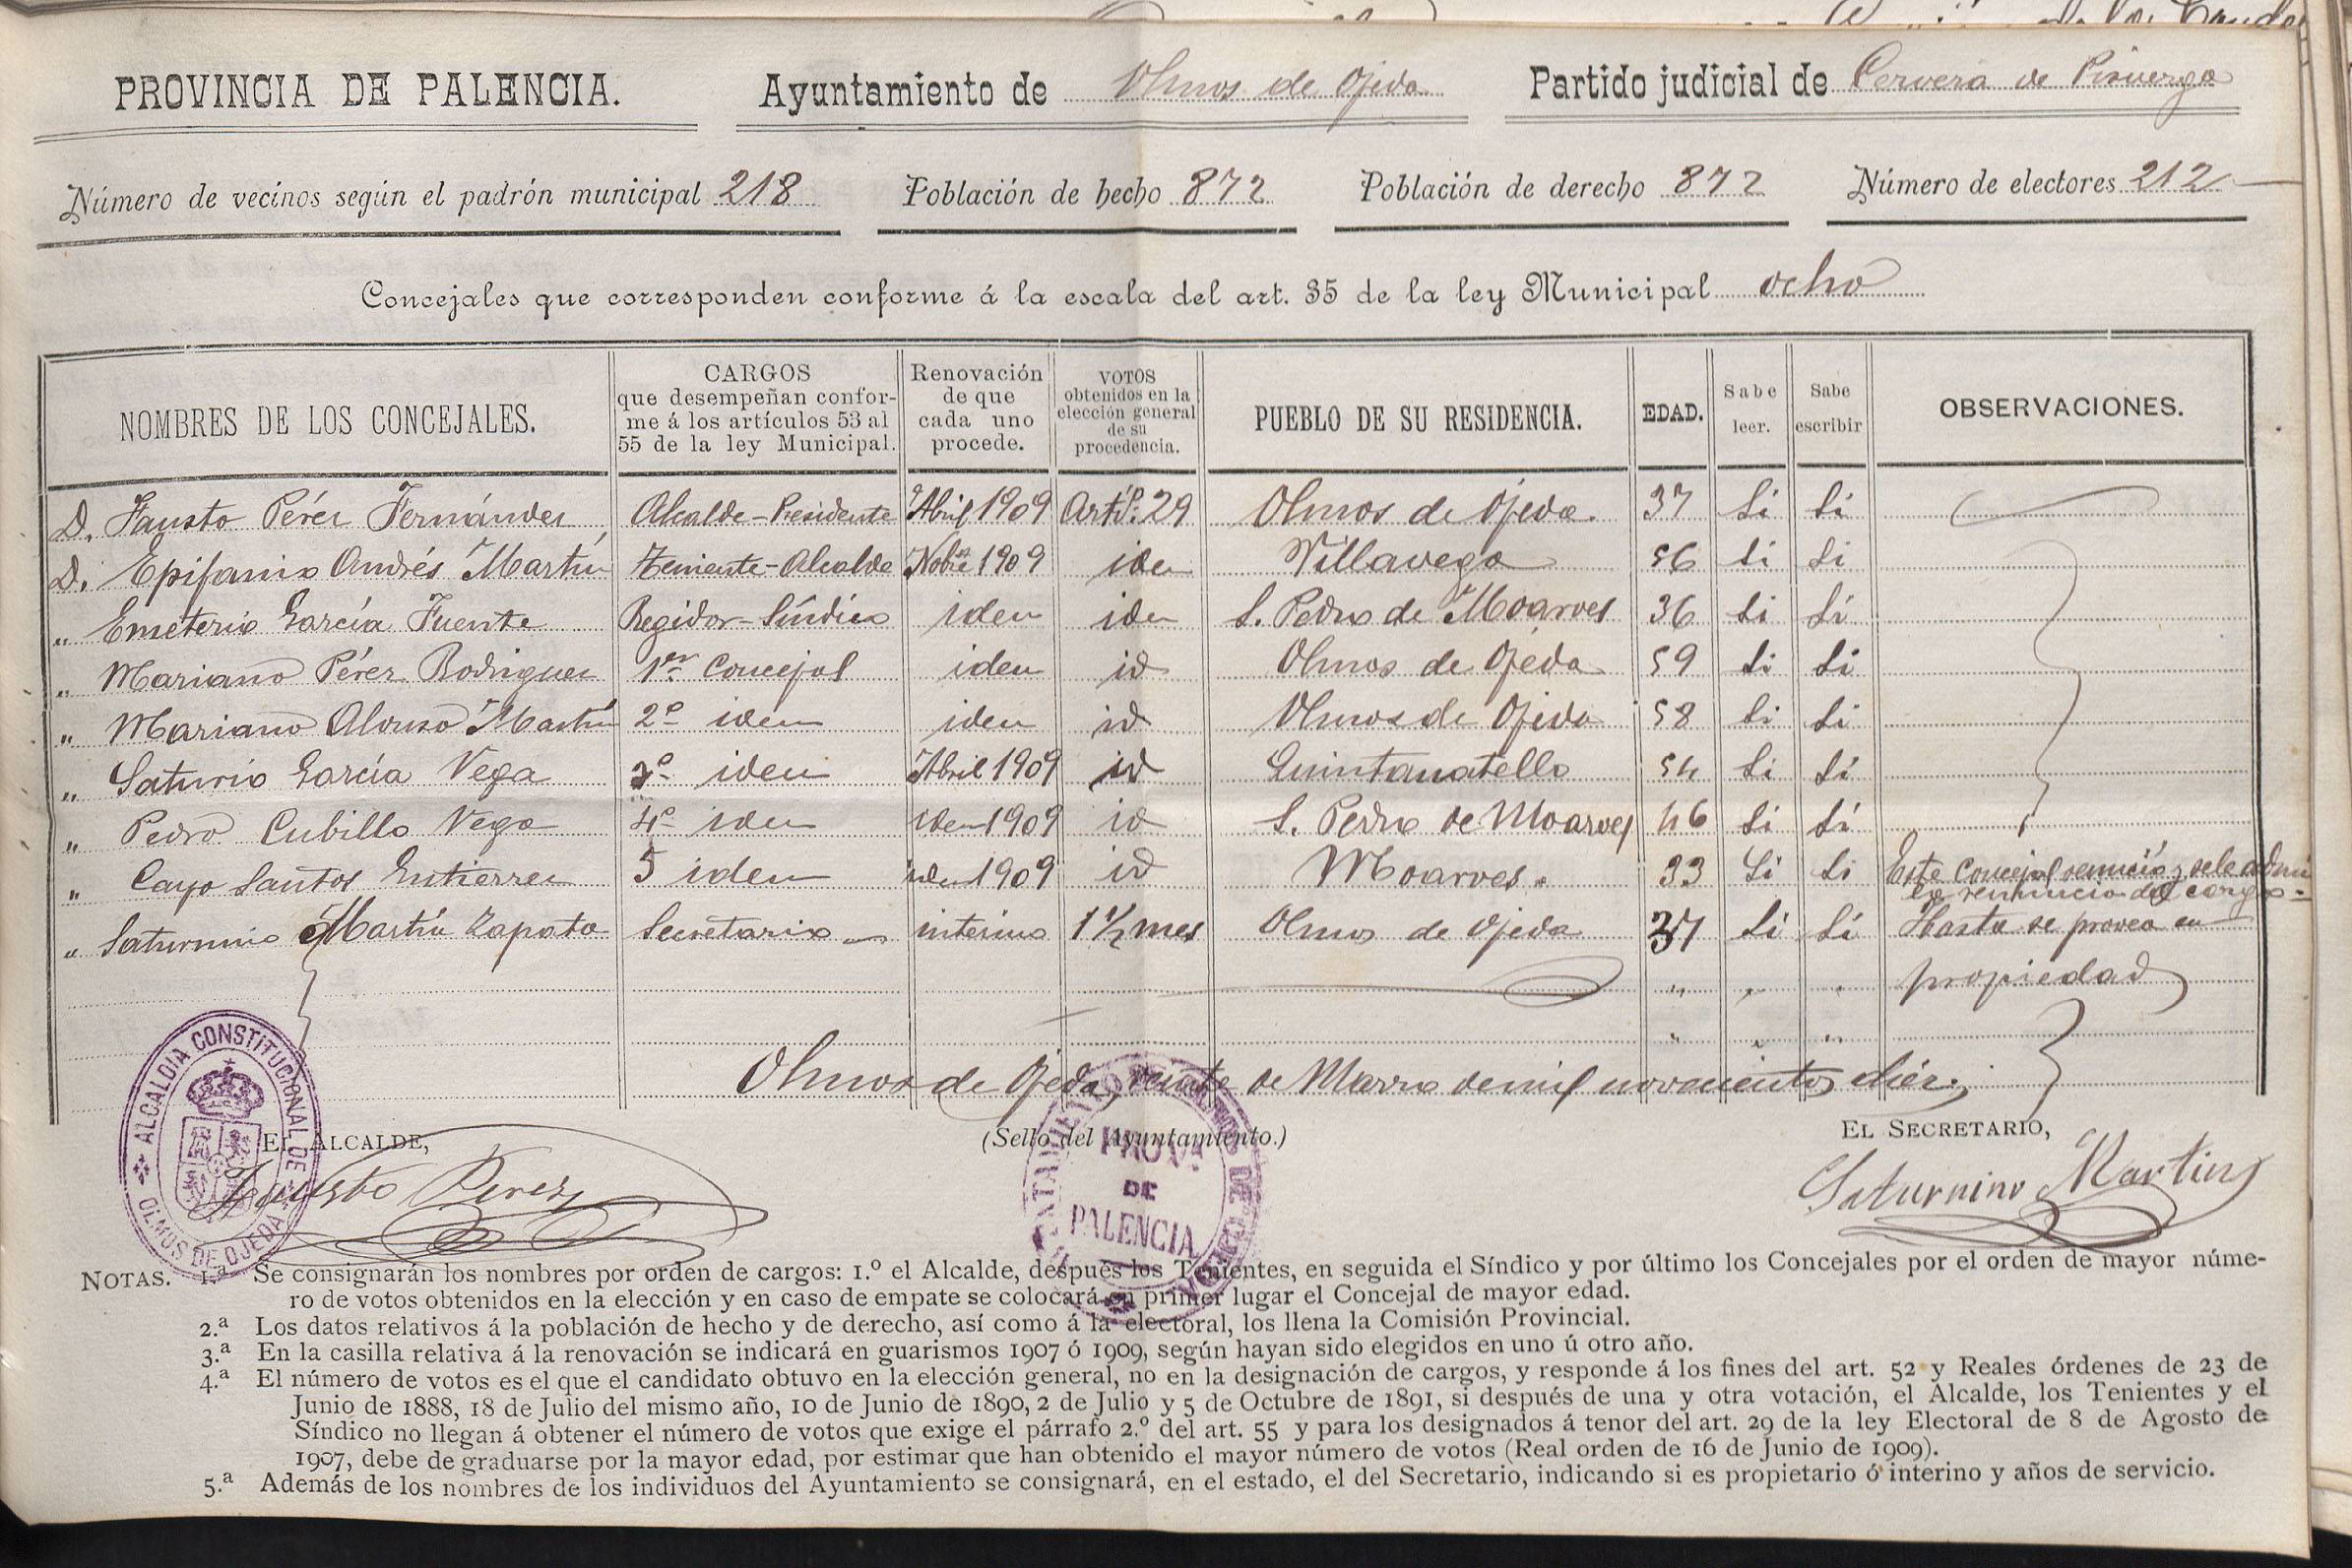 PROVINCIA DE PALENCIA. Ayuntamiento de Olmos de Ojeda Partido judicial de Cervera de Pisuerga
Número de vecinos según el padrón municipal 218 Población de hecho 872 Población de derecho 872 Número de electores 212
Concejales que corresponden conforme á la escala del art. 35 de la ley Municipal ocho
NOMBRES DE LOS CONCEJALES. CARGOS que desempeñan conforme á los artículos 53 al 55 de la ley Municipal. Renovación de que cada uno procede. VOTOS obtenidos en la elección general de su procedencia. PUEBLO DE SU RESIDENCIA. EDAD. Sabe leer. Sabe escribir OBSERVACIONES.
D. Fausto Pérez Fernández Alcalde-Presidente Abril 1909 Artº. 29 Olmos de Ojeda. 37 Si Si
D. Epifanio Andrés Martín Teniente-Alcalde Nobre 1909 iden Villavega 56 Si Si
„ Emeterio García Fuente Regidor-Síndico iden iden S. Pedro de Moarves 36 Si Si
„ Mariano Pérez Rodriguez 1er Concejal iden id Olmos de Ojeda 59 Si Si
„ Mariano Alonso Martín 2º iden iden id Olmos de Ojeda 58 Si Si
„ Saturio García Vega 3º iden Abril 1909 id Quintanatello 54 Si Si
„ Pedro Cubillo Vega 4º iden iden 1909 id S. Pedro de Moarves 46 Si Si
„ Cayo Santos Gutierrez 5 iden iden 1909 id Moarves. 33 Si Si Este Concejal renunció y se le
la renuncia del cargo =
„ Saturnino Martín Zapata Secretario interino 1 1/2 mes Olmos de Ojeda 37 Si Si Hasta se provea en
propiedad
Olmos de Ojeda, veinte de Marzo de mil novecientos diez.
ALCALDIA CONSTITUCIONAL DE OLMOS DE OJEDA
EL ALCALDE, (Sello del Ayuntamiento.) EL SECRETARIO,
Fausto Perez Saturnino Martin
PROVA DE PALENCIA
NOTAS. 1.ª Se consignarán los nombres por orden de cargos: 1.º el Alcalde, después los Tenientes, en seguida el Síndico y por último los Concejales por el orden de mayor núme-
ro de votos obtenidos en la elección y en caso de empate se colocará en primer lugar el Concejal de mayor edad.
2.ª Los datos relativos á la población de hecho y de derecho, así como á la electoral, los llena la Comisión Provincial.
3.ª En la casilla relativa á la renovación se indicará en guarismos 1907 ó 1909, según hayan sido elegidos en uno ú otro año.
4.ª El número de votos es el que el candidato obtuvo en la elección general, no en la designación de cargos, y responde á los fines del art. 52 y Reales órdenes de 23 de
Junio de 1888, 18 de Julio del mismo año, 10 de Junio de 1890, 2 de Julio y 5 de Octubre de 1891, si después de una y otra votación, el Alcalde, los Tenientes y el
Síndico no llegan á obtener el número de votos que exige el párrafo 2.º del art. 55 y para los designados á tenor del art. 29 de la ley Electoral de 8 de Agosto de
1907, debe de graduarse por la mayor edad, por estimar que han obtenido el mayor número de votos (Real orden de 16 de Junio de 1909).
5.ª Además de los nombres de los individuos del Ayuntamiento se consignará, en el estado, el del Secretario, indicando si es propietario ó interino y años de servicio.